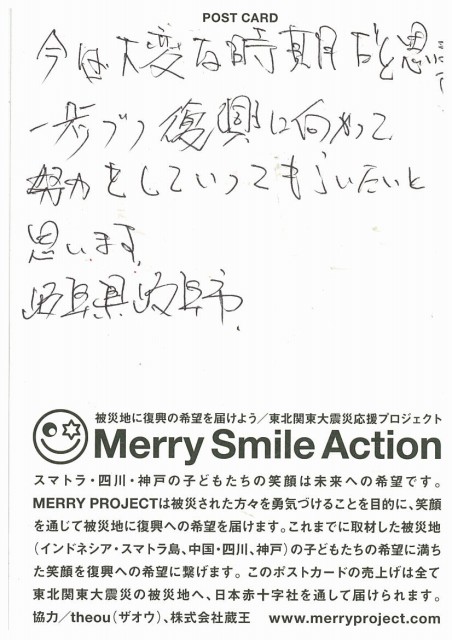 POST CARD
今は大変な時期だと思い
一歩づつ復興に向かって
努力をしていってもらいたいと
思います。
岐阜県岐阜市
被災地に復興の希望を届けよう／東北関東大震災応援プロジェクト
Merry Smile Action
スマトラ・四川・神戸の子どもたちの笑顔は未来への希望です。
MERRY PROJECTは被災された方々を勇気づけることを目的に、笑顔
を通じて被災地に復興への希望を届けます。これまでに取材した被災地
（インドネシア・スマトラ島、中国・四川、神戸）の子どもたちの希望に満ち
た笑顔を復興への希望に繋げます。このポストカードの売上げは全て
東北関東大震災の被災地へ、日本赤十字社を通して届けられます。
協力／theou（ザオウ）、株式会社蔵王 www.merryproject.com